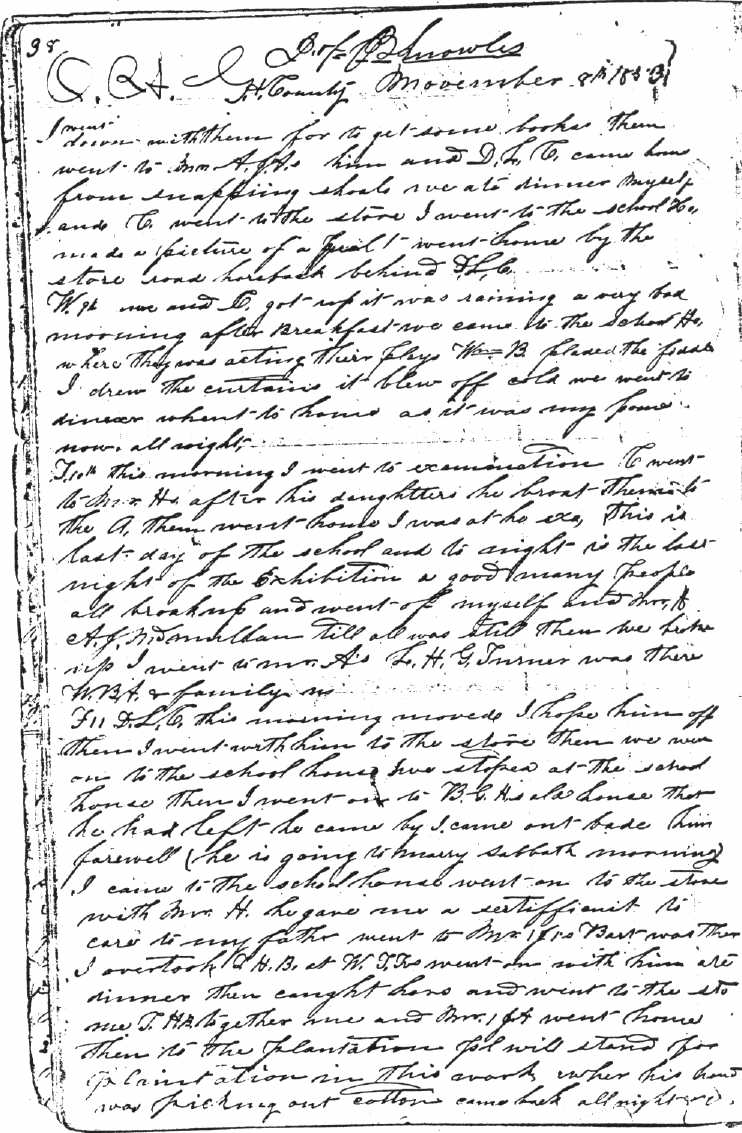 38
P. of B Knowles
H. County November 8th 1853
I went
down with them for to get some books then
went to Mr. A. J. As him and D. L. C. came home
from snapping shoals we ate dinner myself
and C. went to the store I went to the school Ho,
made a picture of a I went home by the
store road horseback behind D. L. C.
W. 9th me and C. got up it was raining a very bad
morning after Breakfast we came to the school Ho,
where they was acting their plays Wm B. played the
I drew the curtains it blew off cold we went to
dinner whent to home as it was my home
now. all night,
T. 10th this morning I went to examination C went
to Mr. Hs after his daughtters he broat them to
the A, them went home I was at he exa, This is
last day of the school and to night is the last
night of the Exhibition a good many people
all broak up and went of myself and Mr,
A. J. till all was still then we
up I went to Mr. As L. H. G. Turner was there
W B A. & family
F 11 D. L. C. this morning moved I hope him off
then I went with him to the store then we
on to the school house we stoped at the school
house then I went on to B. C. Hs old house that
he had left he came by I came out bade him
farewell (he is going to marry sabbath morning)
I came to the school house went on to the store
with Mr. H. he gave me a sertifficient to
care to my father went to Mr. Bart was ther
I overtook H. B. at W. T. went on with him ate
dinner then caught hors and went to the sto
me T. together me and Mr. went home
then to the plantation pl will stand for
plaintation in this work wher his hand
was picking out cotton came back all night